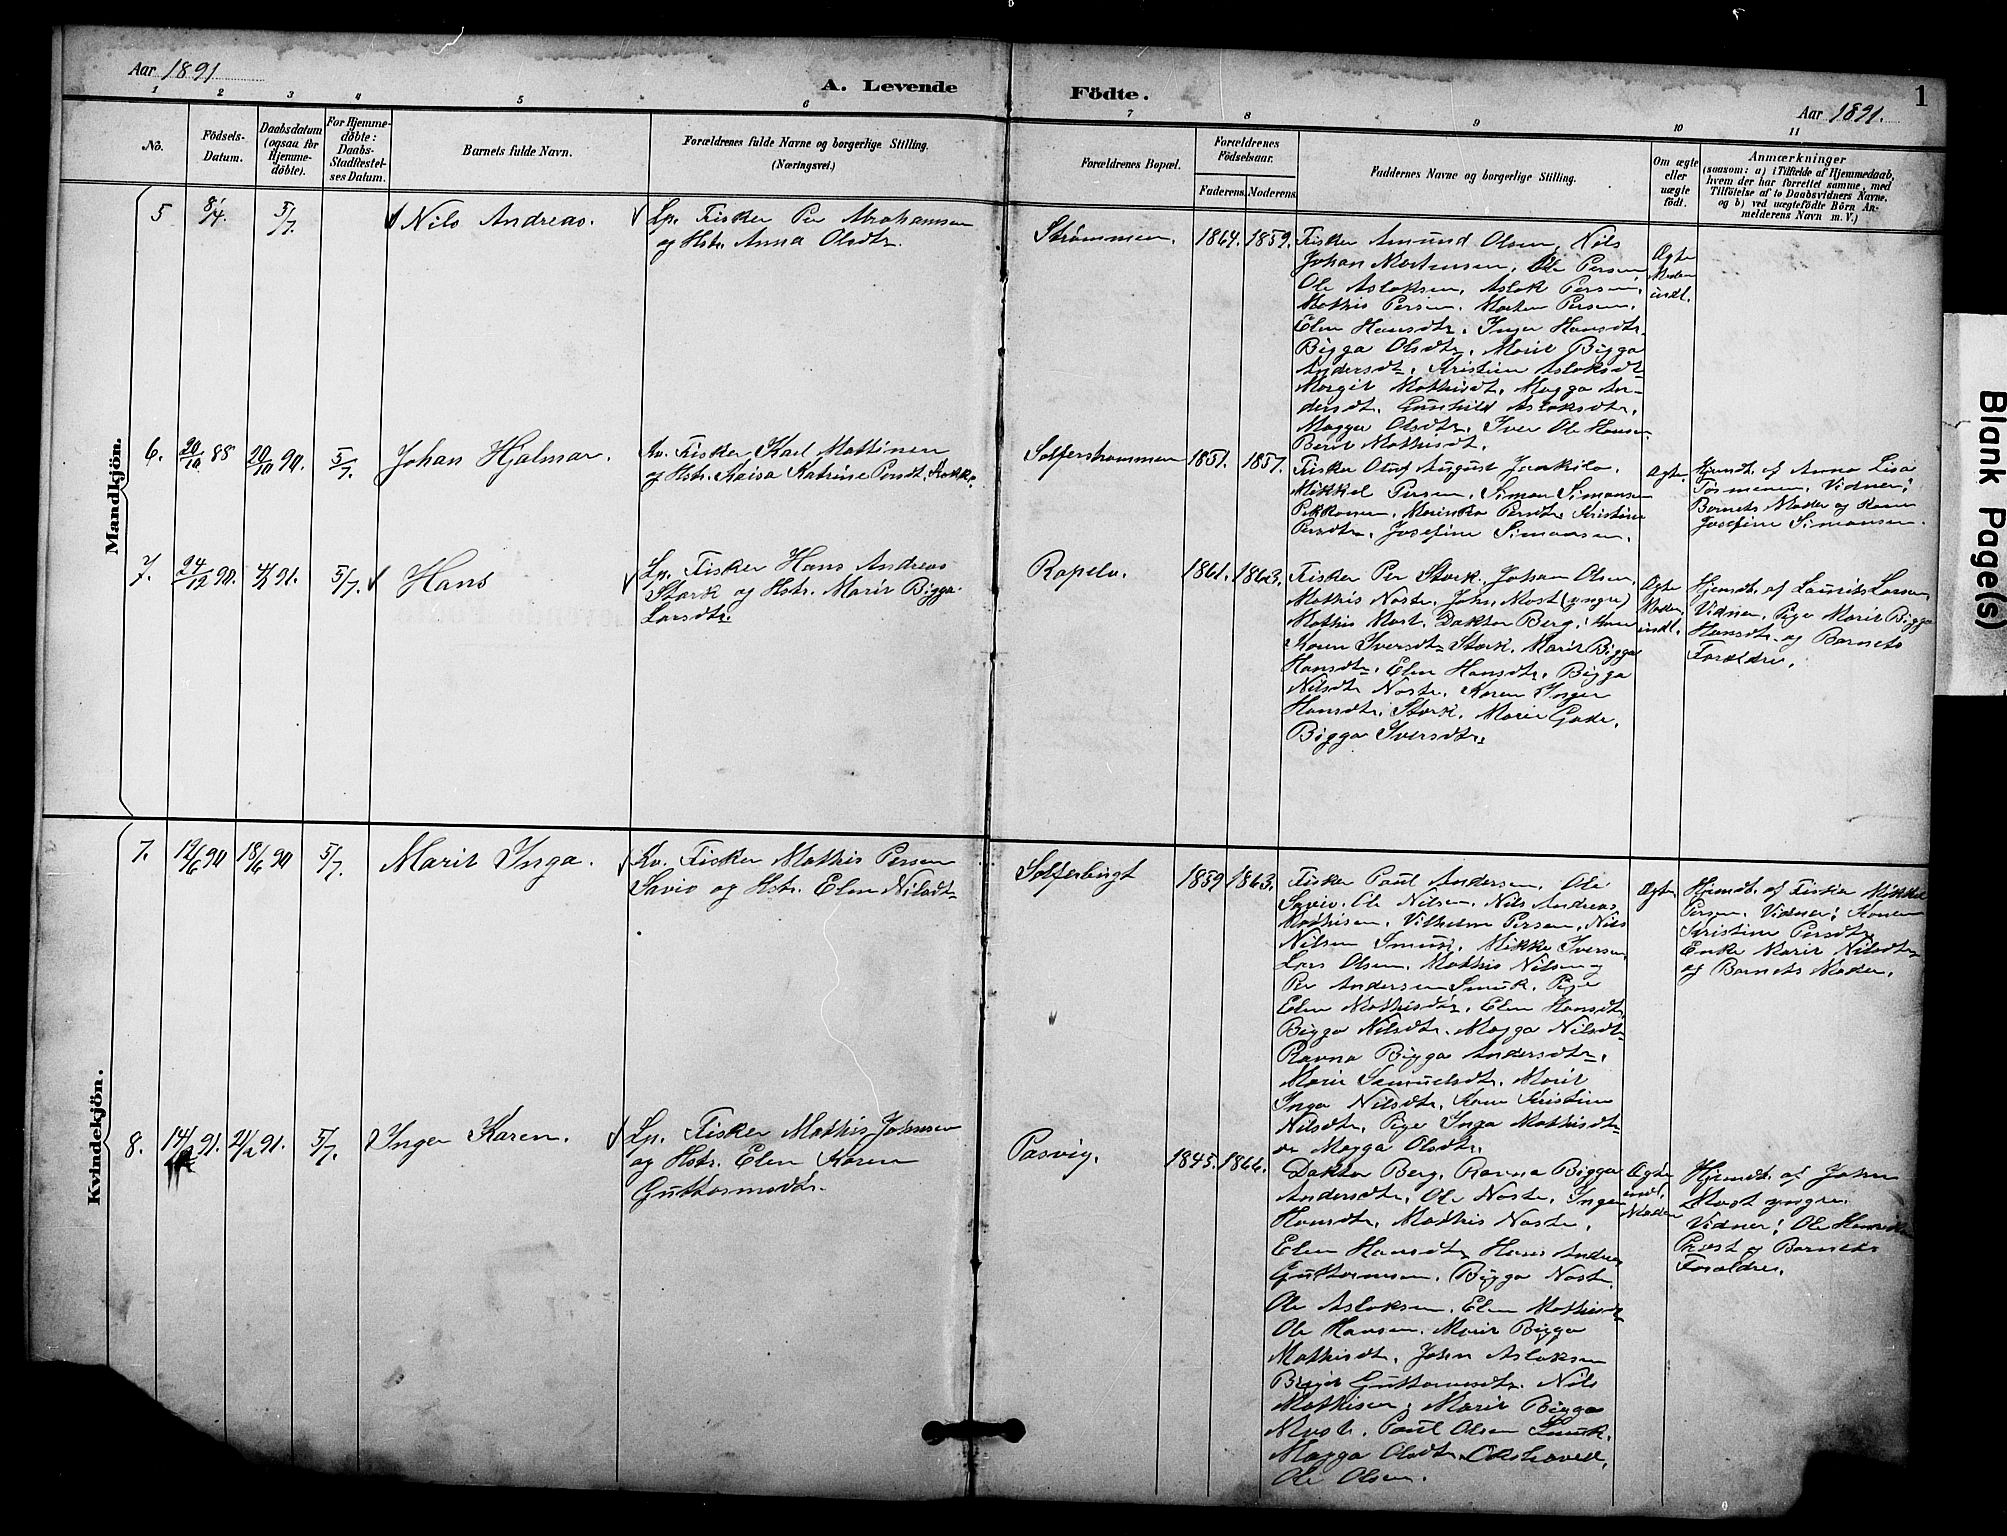 Aar 1891
A. Levende
Födte.
Aar 1891.
1
1 2 3 4 5 6 7 8 9 10 11
No.
Födsels-
Datum.
Daabsdatum
(ogsaa for
Hjemme-
döbte).
For Hjemme-
döbte:
Daabs-
Stadfæstel-
ses Datum.
Barnets fulde Navn.
Forældrenes fulde Navne og borgerlige Stilling.
(Næringsvei.)
Forældrenes Bopæl.
Forældrenes
Födselsaar.
Faderens. Moderens.
Faddernes Navne og borgerlige Stilling.
Om ægte
eller
uægte
födt.
Anmærkninger
(saasom: a) i Tilfælde af Hjemmedaab,
hvem der har forrettet samme, med
Tilföielse af to Daabsvidners Navne,
og b) ved uægtefödte Börn An-
melderens Navn m. V.)
Mandkjön.
5
8/4.
5/7.
Nils Andreas.
Lp. Fisker Per Abrahamsen
og Hstr. Anna Olsdtr.
Strømmen.
1864. 1859.
Fisker Amund Olsen, Nils
Johan Mortensen, Ole Persen,
Ole Aslaksen, Aslak Persen,
Mathis Persen, Morten Persen,
Elen Hansdtr. Inger Hansdtr.
Bigga Olsdtr. Marit Bigga
Andersdt. Kristine Aslaksdt
Margit Mathisdt. Magga An-
dersdt. Gunhild Aslaksdtr.
Magga Olsdtr. Iver Ole Hansen
Berit Mathisdt.
Ægte
Moder
indl.
6.
20/10 88
20/10 90.
5/7
Johan Hjalmar.
Kv. Fisker Karl Mattinen
og Hstr. Kaisa Katrine
1851. 1857.
Fisker Oluf August
Mikkel Persen, Simon Simonsen
Marinka Persdtr. Kristine
Persdtr. Josefine Simonsen.
Ægte.
Hjemdt. af Anna Lisa
Vidner:
Barnets Moder og Kone
Josefine Simonsen.
7.
24/12 90.
91.
5/7.
Hans
Lp. Fisker Hans Andreas
Stork og Hstr. Marit Bigga
Larsdtr.
1861. 1863.
Fisker Per Stork, Johan Olsen,
Mathis Noste, John Most (yngre)
Mathis Most, Doktor Berg,
Karen Iversdtr Stork, Marit Bigga
Hansdtr. Elen Hansdtr. Bigga
Nilsdtr Noste, Karen Inger
Hansdtr. Stork, Marie Gade,
Bigga Iversdtr.
Ægte
Moder
indl.
Hjemdt. af Laurits Larsen,
Vidner, Pige Marit Bigga
Hansdtr. og Barnets
Forældre.
Kvindekjön.
7.
12/6 90
18/6 90
5/7.
Marit Inga.
Kv. Fisker Mathis Persen
Savio og Hstr. Elen Nilsdtr
1859 1863.
Fisker Paul Andersen, Ole
Savio, Ole Nilsen, Nils Andreas
Mathisen, Vilhelm Persen, Nils
Nilsen Smuk, Mikkel Iversen
Lars Olsen, Mathis Nilsen
Per Andersen Smuk, Pige
Elen Mathisdtr, Elen Hansdtr,
Bigga Nilsdtr. Magga Nilsdt
Ravna Bigga Andersdtr.
Marit Samuelsdtr. Marit
Inga Nilsdtr. Kone Kristine
Nilsdtr. Pige Inga Mathisdt
Magga Olsdtr.
Ægte.
Hjemdt. af Fisker Mikkel
Persen. Vidner: Konen
Kristine Persdtr
Enke Marit Nilsdtr
og Barnets Moder.
8.
91.
91.
5/7.
Inger Karen.
Lp. Fisker Mathis Johnsen
og Hstr. Elen Karen
Guttormsdtr.
Pasvig.
1845. 1866.
Doktor Berg, Ravna Bigga
Andersdtr, Ole Noste, Inger
Hansdtr, Mathis Noste,
Elen Hansdtr Hans Andreas
Guttormsen, Bigga Noste,
Ole Aslaksen, Elen Mathisdtr
Ole Hansen, Marit Bigga
Mathisdtr, John Aslaksen
Guttormsdtr. Nils
Mathisen, Marit Bigga
Most, Paul Olsen Smuk,
Magga Olsdtr
Ole Olsen.
Ægte
indl.
Moder
Hjemdt. af John
Most yngre.
Vidner: Ole
og Barnets
Forældre.
Blank Page(s)